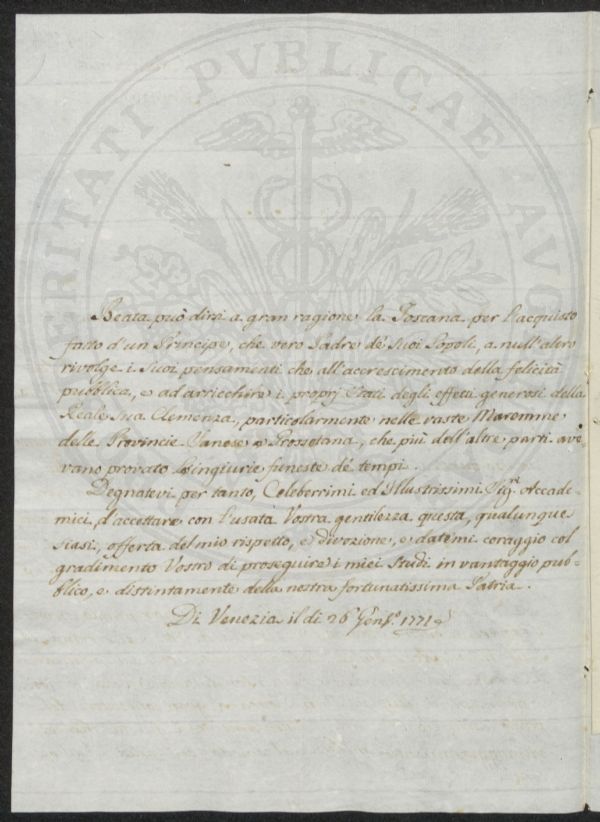 VERITATI PVBLICAE
Beata può dirsi a gran ragione la Toscana per l'acquisto
fatto d'un Principe, che vero Padre de' Suoi Popoli, a null'altro
rivolge i Suoi pensamenti che all'accrescimento della felicità
pubblica, e ad arricchire i proprj Stati degli effetti generosi della
Reale Sua Clemenza, particolarmente nelle vaste Maremme
delle Provincie Sanese e Grossetana, che più dell'altre parti ave
vano provato l'ingiurie funeste de' tempi.
Degnatevi per tanto, Celeberrimi ed Illustrissimi Sig.ri Accade-
mici, d'accettare con l'usata Vostra gentilezza questa, qualunque
siasi, offerta del mio rispetto, e divozione, e datemi coraggio col
gradimento Vostro di proseguire i miei Studi in vantaggio pub-
blico, e distintamente della nostra fortunatissima Patria.
Di Venezia il dì 26 Genn.o 1771